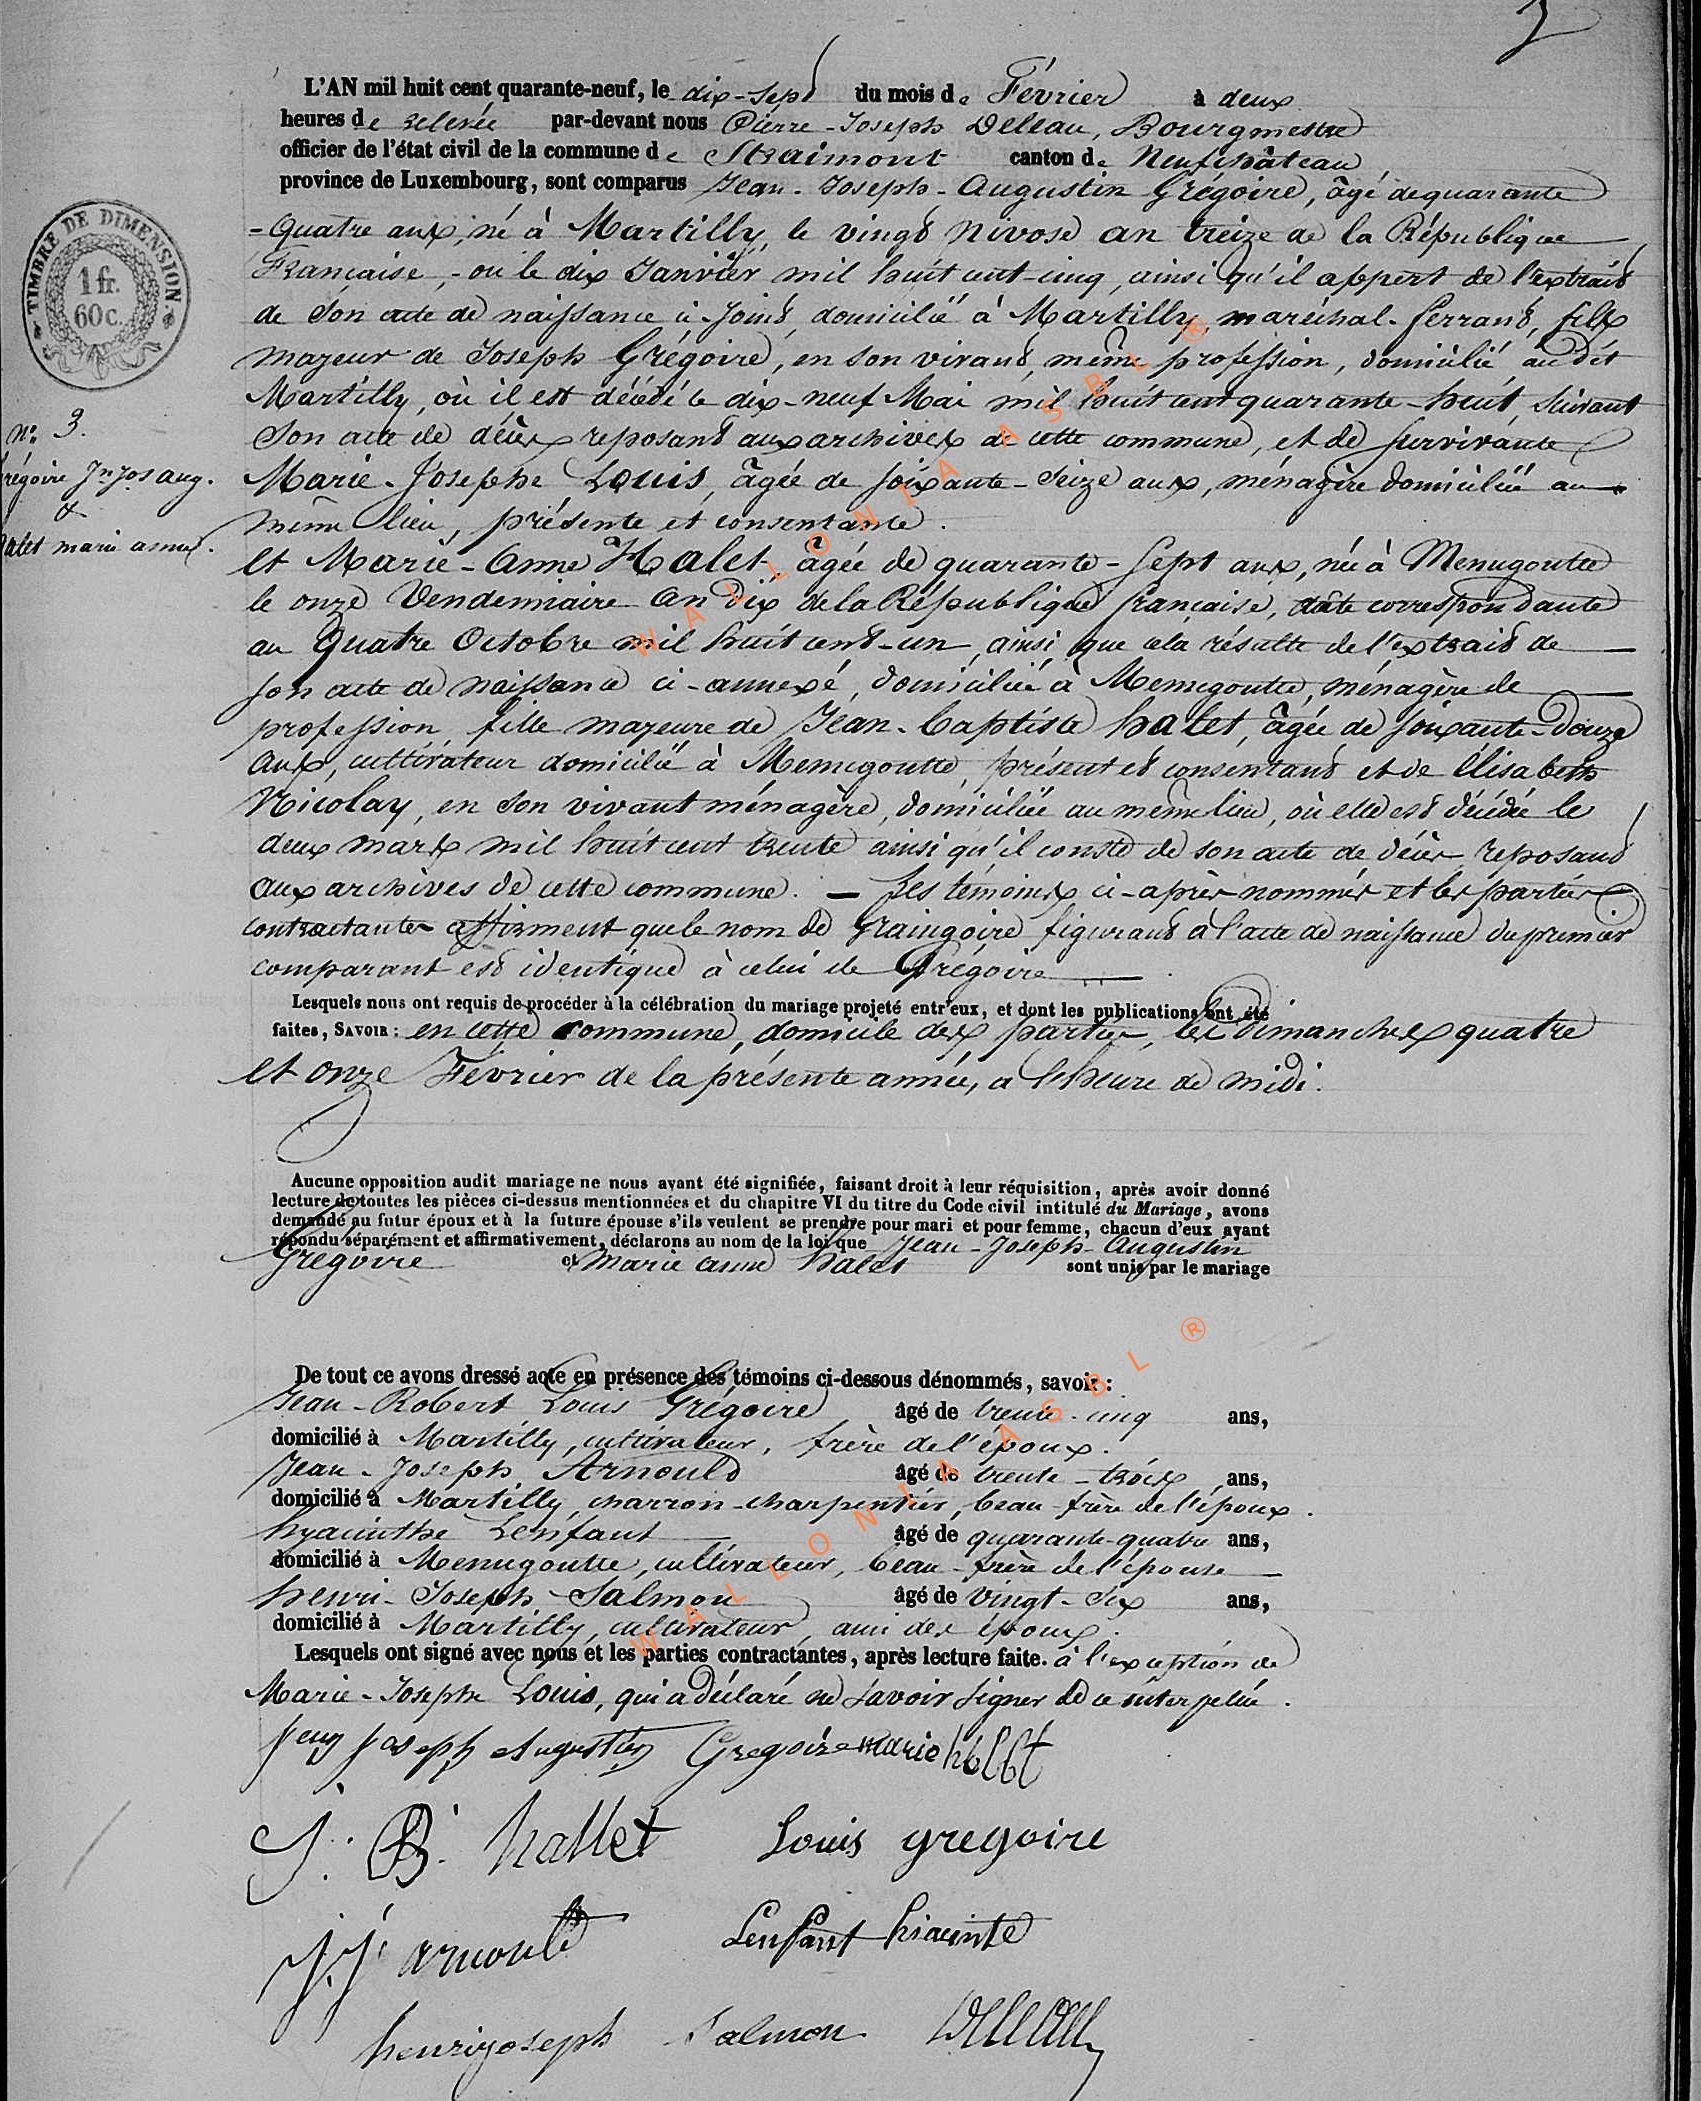 L'AN mil huit cent quarante-neuf, le dix-sept du mois de Février à deux
heures de relevée par-devant nous Pierre-Joseph Deleau, Bourgmestre
officier de l'état civil de la commune de Straimont canton de Neufchâteau
province de Luxembourg, sont comparus Jean-Joseph-Augustin Grégoire, âgé de quarante
-quatre ans, né à Martilly, le vingt Nivose an treize de la République
Française, - ou le dix Janvier mil huit cent-cinq, ainsi qu'il appert de l'extrait
de son acte de naissance ci-joint, domicilié à Martilly, maréchal-ferrant, fils
majeur de Joseph Grégoire, en son vivant, même profession, domicilié au dit
Martilly, où il est décédé le dix-neuf Mai mil huit cent quarante-huit, suivant
son acte de décès reposant aux archives de cette commune, et de survivante
Marie-Josephe Louis, âgée de soixante-seize ans, ménagère domiciliée au
même lieu, présente et consentante.
et Marie-Anne Halet âgée de quarante-sept ans, née à Menugoutte
le onze Vendemiaire an Dix de la République française, date correspondante
au Quatre Octobre mil huit cent-un, ainsi que cela résulte de l'extrait de
son acte de naissance ci-annexé, domiciliée à Menugoutte, ménagère de
profession, fille majeure de Jean-baptiste halet, âgée de soixante-douze
ans, cultivateur domicilié à Menugoutte, présent et consentant et de Elisabeth
Nicolay, en son vivant ménagère, domiciliée au même lieu, où elle est décédée le
deux mars mil huit cent trente ainsi qu'il conste de son acte de décès reposant
aux archives de cette commune. — Les témoins ci-après nommés et les parties
contractantes affirment que le nom de Graingoire figurant à l'acte de naissance du premier
comparant est identique à celui de Grégoire
Lesquels nous ont requis de procéder à la célébration du mariage projeté entr'eux, et dont les publications ont été
faites, SAVOIR : en cette commune, domicile des parties, les dimanches quatre
et onze Février de la présente année, a l'heure de midi.
Aucune opposition audit mariage ne nous ayant été signifiée, faisant droit à leur réquisition, après avoir donné
lecture de toutes les pièces ci-dessus mentionnées et du chapitre VI du titre du Code civil intitulé du Mariage, avons
demandé au futur époux et à la future épouse s'ils veulent se prendre pour mari et pour femme, chacun d'eux ayant
répondu séparément et affirmativement, déclarons au nom de la loi que Jean-Joseph-Augustin
Grégoire et Marie anne halet sont unis par le mariage
De tout ce avons dressé acte en présence des témoins ci-dessous dénommés, savoir :
Jean-Robert Louis Grégoire âgé de trente-cinq ans,
domicilié à Martilly, cultivateur, frère de l'époux.
Jean-Joseph Arnould âgé de trente-trois ans,
domicilié à Martilly, charron-charpentier, beau-frère de l'époux.
hyacinthe Lenfant âgé de quarante-quatre ans,
domicilié à Menugoutte, cultivateur, beau-frère de l'épouse
henri-Joseph Salmon âgé de vingt-six ans,
domicilié à Martilly, cultivateur, ami des époux.
Lesquels ont signé avec nous et les parties contractantes, après lecture faite. à l'exception de
Marie-Josephe Louis, qui a déclaré ne savoir signer de ce interpelée.
Jean Joseph Augustin Gregoire marie hélét
J. B. hallet Louis gregoire
J. J. arnould Lenfant hiacinte
henri joseph Salmon
TIMBRE DE DIMENSION
1 fr.
60 c.
no. 3.
régoire Jn Jos aug.
&
alet marie anne.
WALLONIA ASBL ®
WALLONIA ASBL ®